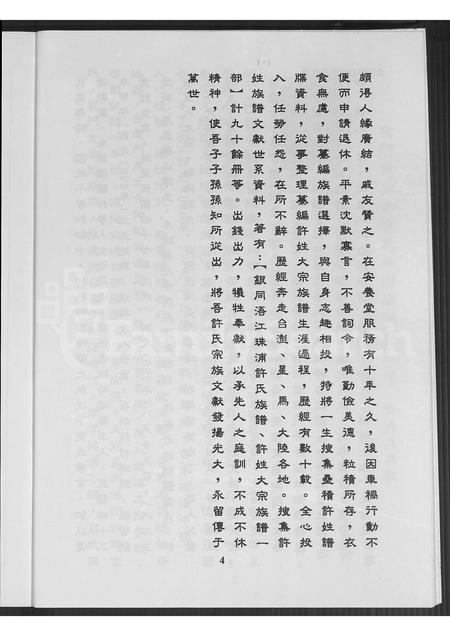 頗得人緣廣結，戚友贊之。在安養堂服務有十年之久，後因車禍行動不
便而申請退休。平素沈默寡言，不善詞令，唯勤儉美德，粒積所存，衣
食無慮，對纂編族譜選擇，與自身志趣相投，特將一生搜集疊積許姓譜
牒資料，從事整理纂編許姓大宗族譜生涯過程，歷經有數十載。全心投
入，任勞任怨，在所不辭。歷經奔走台澎、星、馬、大陸各地。搜集許
姓族譜文獻世系資料，著有：【銀同浯江珠浦許氏族譜、許姓大宗族譜一
部】計九十餘冊等。出錢出力，犧牲奉獻，以承先人之庭訓，不成不休
精神，使吾子子孫孫知所從出，將吾許氏宗族文獻發揚光大，永留傳于
萬世。
4